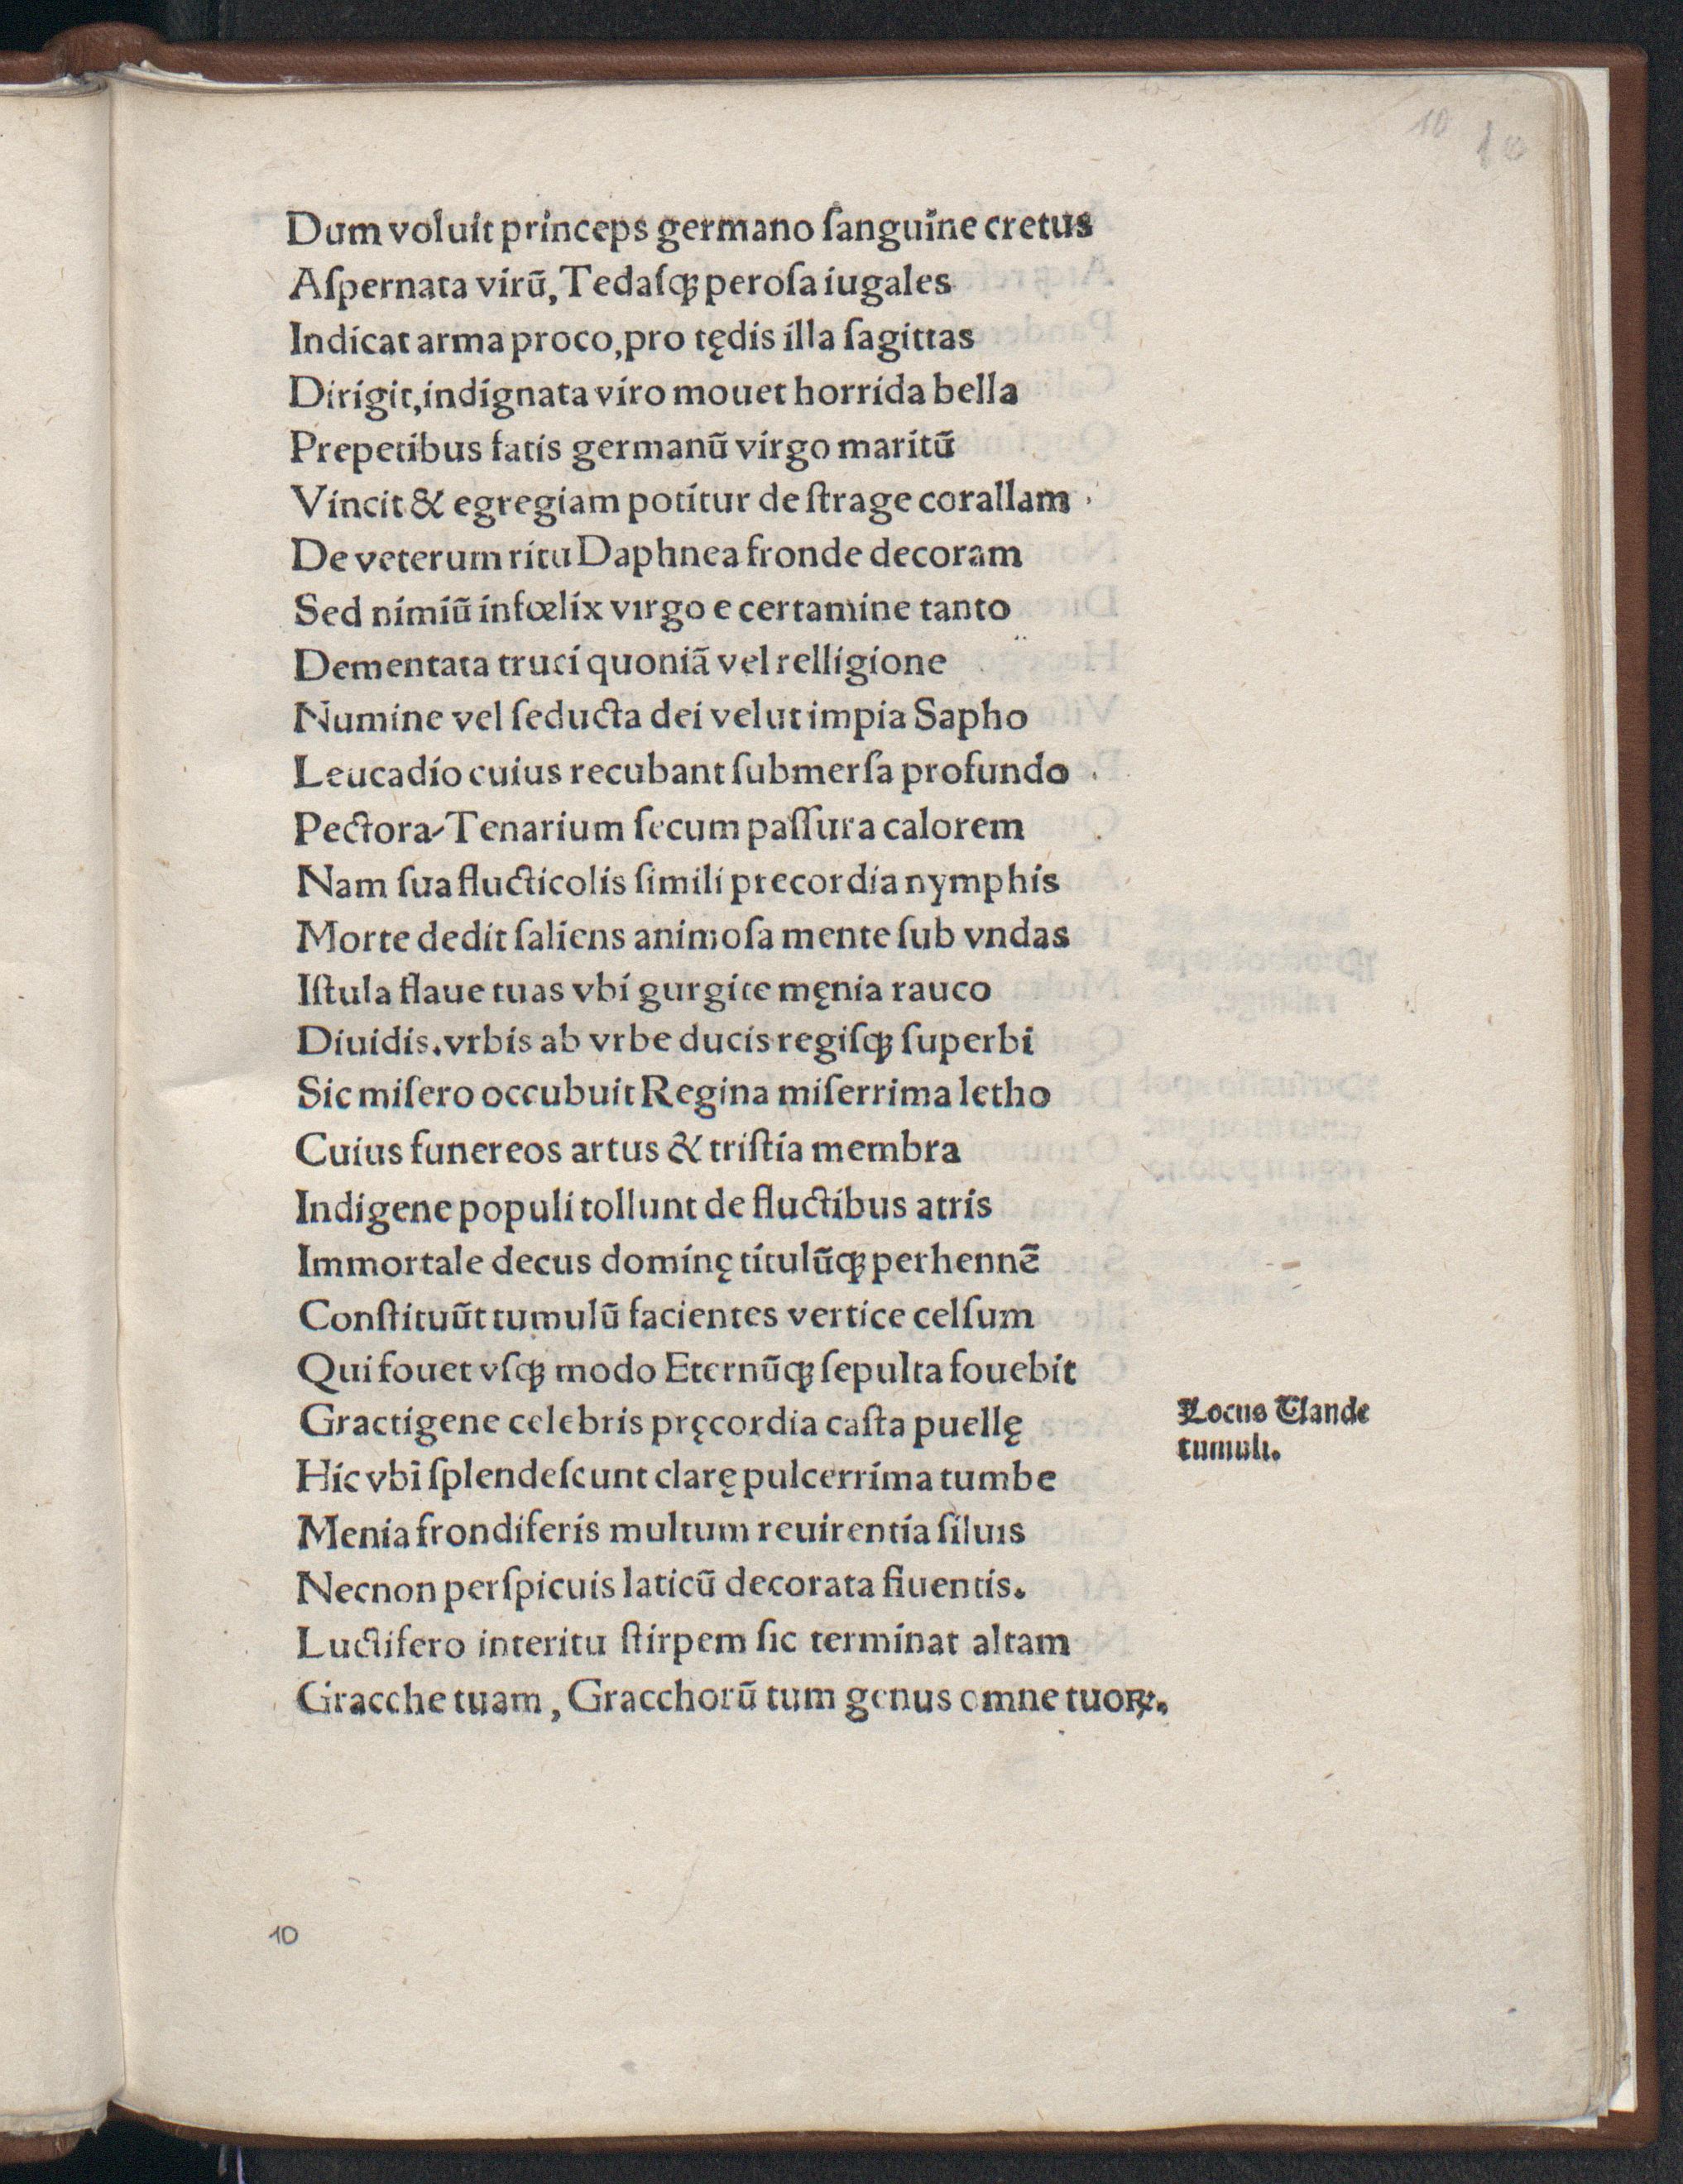 10 10
Dum voluit princeps germano ſanguine cretus
Aſpernata virū, Tedaſqꝫ peroſa iugales
Indicat arma proco, pro tędis illa ſagittas
Dirigit, indignata viro mouet horrida bella
Prepetibus fatis germanū virgo maritū
Vincit & egregiam potitur de ſtrage corallam
De veterum ritu Daphnea fronde decoram
Sed nimiū infœlix virgo e certamine tanto
Dementata truci quoniā vel relligione
Numine vel ſeducta dei velut impia Sapho
Leucadio cuius recubant ſubmerſa profundo
Pectora⸗Tenarium ſecum paſſura calorem
Nam ſua flucticolis ſimili precordia nymphis
Morte dedit ſaliens animoſa mente ſub vndas
Iſtula flaue tuas vbi gurgite męnia rauco
Diuidis. vrbis ab vrbe ducis regiſqꝫ ſuperbi
Sic miſero occubuit Regina miſerrima letho
Cuius funereos artus & triſtia membra
Indigene populi tollunt de fluctibus atris
Immortale decus dominę titulūqꝫ perhennē
Conſtituūt tumulū facientes vertice celſum
Qui fouet vſqꝫ modo Eternūqꝫ ſepulta fouebit
Gractigene celebris pręcordia caſta puellę
Locus Clande
tumuli.
Hic vbi ſplendeſcunt clarę pulcerrima tumbe
Menia frondiferis multum reuirentia ſiluis
Necnon perſpicuis laticū decorata fiuentis.
Luctifero interitu ſtirpem ſic terminat altam
Gracche tuam, Gracchorū tum genus omne tuoꝝ.
10